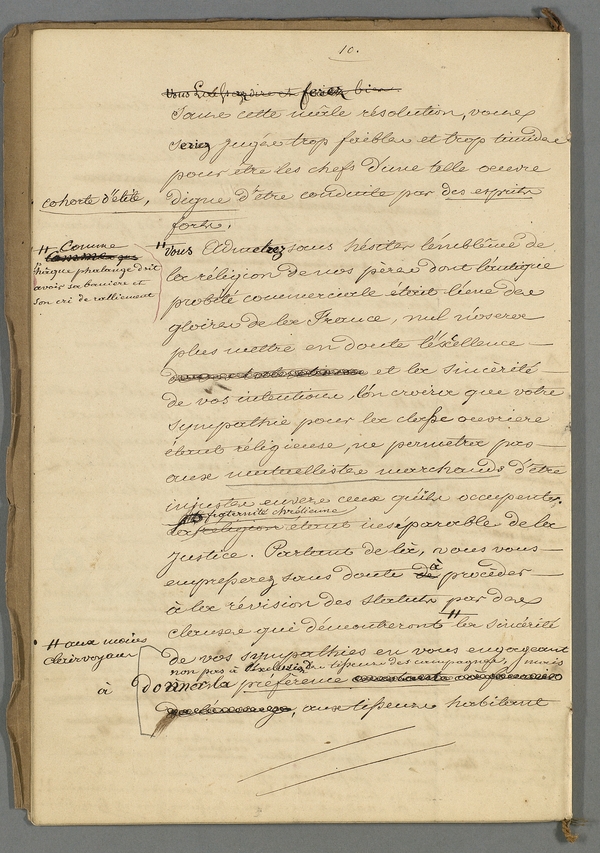 10.
Sans cette mâle résolution, vous
seriez jugés trop foibles et trop timides
pour être les chefs d'une telle œuvre
cohorte d'élite,
digne d'être conduite par des esprits
forts.
# Comme
chaque phalange doit
avoir sa baniere et
son cri de ralliement
" vous Admettez sans hésiter l'emblême de
la réligion de nos pères dont l'antique
probité commerciale étoit l'une des
gloires de la France, nul n'osera
plus mettre en doute l'éxellence
et la sincérité
de vos intentions. l'on croira que votre
sympathie pour la classe ouvriere
étant réligieuse, ne permettra pas
aux mutuellistes marchands d'être
injustes envers ceux qu'ils occupent,
fraternité chrétienne
la religion étant inséparable de la
justice. Partant de là, vous vous
empresserez sans doute à procéder
à la révision des statuts par des
clauses qui démontreront # la sincérité
# aux moins
clairvoyans
de vos sympathies en vous engageant
non pas à l'exclusion des tisseurs des campagnes, mais
à donner la préférence
, aux tisseurs habitant